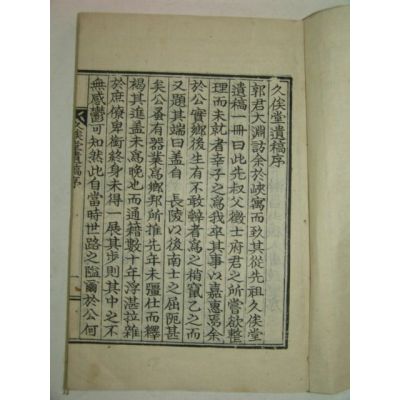 久俟堂遺稿序
郭君大淵訪余於峽寓而致其從先祖久俟堂
遺稿一冊曰此先叔父徵士府君之所嘗欲整
理而未就者幸子之爲我卒其事以嘉惠焉余
於公實鄕後生有不敢辭者爲之稍竄乙之而
又題其端曰盖自 長陵以後南士之屈阨甚
矣公蚤有器業爲鄕邦所推先年未彊仕而釋
褐其進盖未爲晩也而通籍數十年浮湛拉雜
於庶僚卑銜終身未得一展其步則其中之不
無感鬱可知然此自當時世路之隘爾於公何
久俟堂遺稿序 一